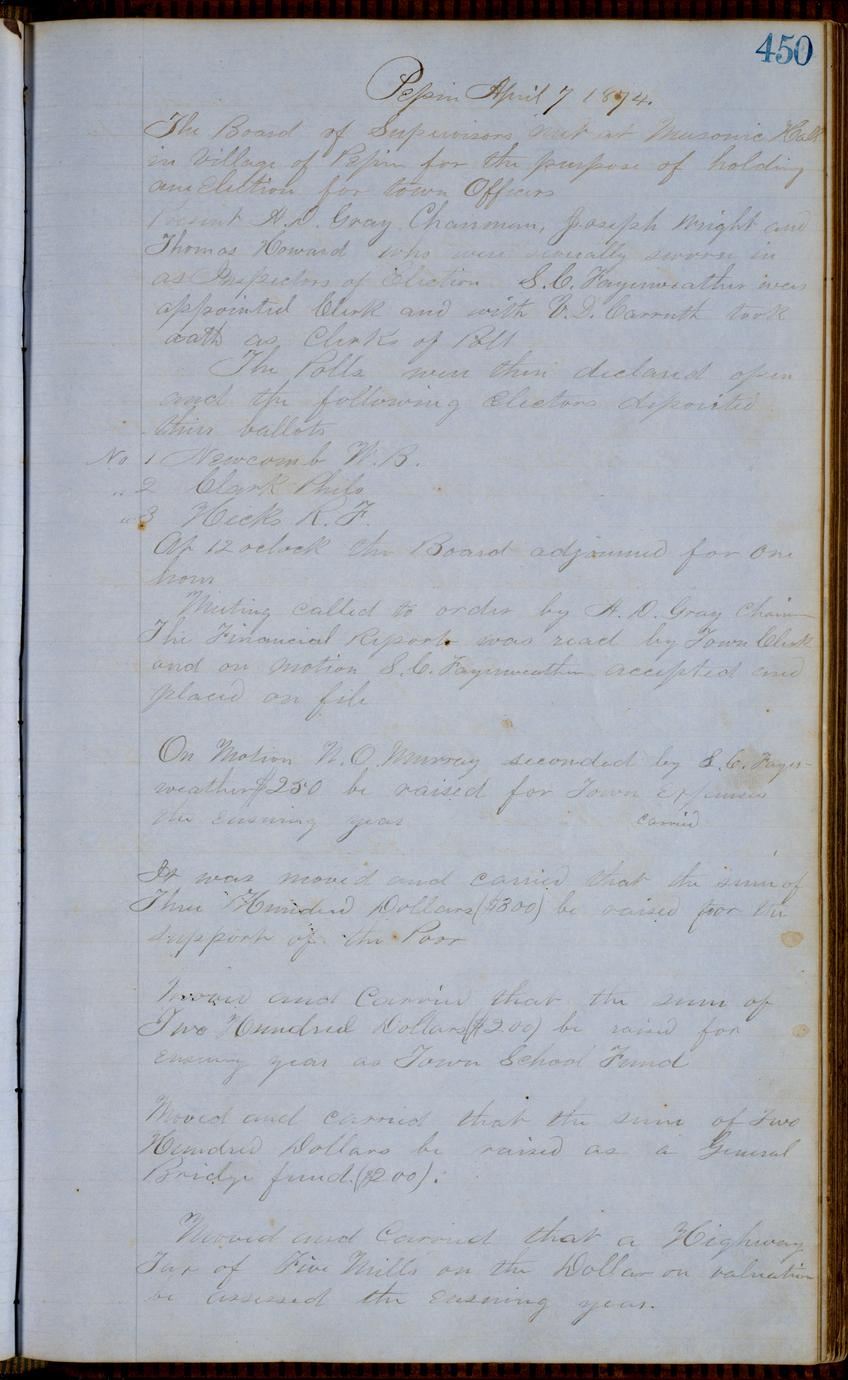 450
Pepin April 7 1874.
The Board of Supervisors met at Masonic Hall
in Village of Pepin for the purpose of holding
any Election for town Officers
Present A.D. Gray Chairman, Joseph Wright and
Thomas Howard who were severally sworn in
as Inspectors of Election S.C. Fayerweather was
appointed Clerk and with V.D. Carruth took
oath as Clerks of Poll
The Polls were then declared open
and the following Electors deposited
their ballots
No 1 Newcomb W.B.
" 2 Clark Philo
" 3 Hicks R.F.
At 12 oclock the Board adjourned for one
hour
Meeting called to order by A.D. Gray Chairm
The Financial Report was read by Town Clerk
and on motion S.C. Fayerweather accepted and
placed on file
On Motion N.O. Murray seconded by S.C. Fayer-
weather $250 be raised for Town Expenses
the ensuing year carried
It was moved and carried that the sum of
Three Hundred Dollars ($300) be raised for the
support of the Poor
Moved and Carried that the sum of
Two Hundred Dollars ($200) be raised for
ensuing year as Town School Fund
Moved and carried that the sum of Two
Hundred Dollars be raised as a General
Bridge fund. ($200).
Moved and Carried that a Highway
Tax of Five Mills on the Dollar on valuation
be assessed the ensuing year.